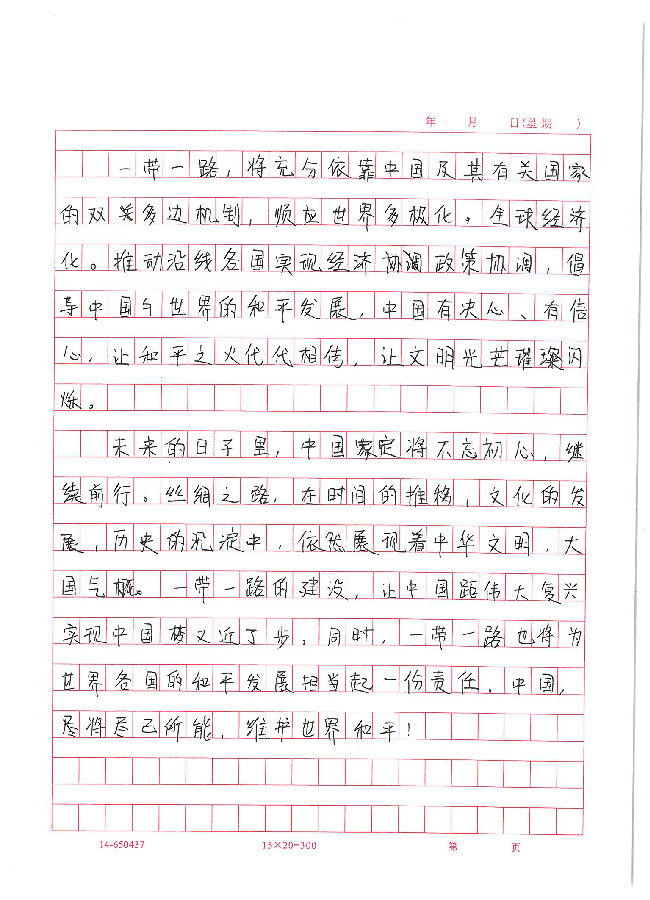 年 月 日(星期 )
一带一路，将充分依靠中国及其有关国家
的双关多边机制，顺应世界多极化。全球经济
化。推动沿线各国实现经济协调政策协调，倡
导中国与世界的和平发展，中国有决心、有信
心，让和平之火代代相传，让文明光芒璀璨闪
烁。
未来的日子里，中国家定将不忘初心，继
续前行。丝绸之路，在时间的推移，文化的发
展，历史的沉淀中，依然展现着中华文明，大
国气概。一带一路的建设，让中国距伟大复兴
实现中国梦又近了步，同时，一带一路也将为
世界各国的和平发展担当起一份责任，中国，
将尽己所能，维护世界和平！
14-650437 15×20=300 第 页